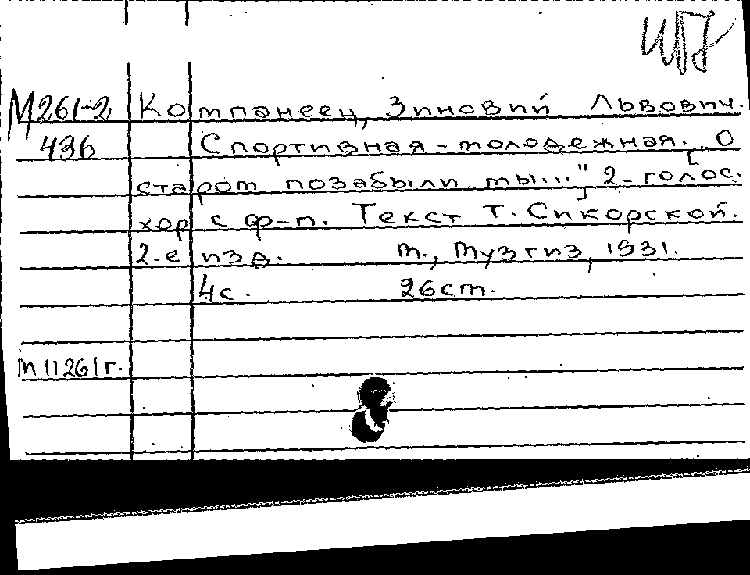 М261-2 Компанеец, Зиновий Львович.
436 Спортивная-молодежная. [„О
старом позабыли мы..."] 2-голос.
хор с ф-п. Текст Т. Сикорской.
2-е изд. М., Музгиз, 1931.
4с. 26см.
М 11261г.